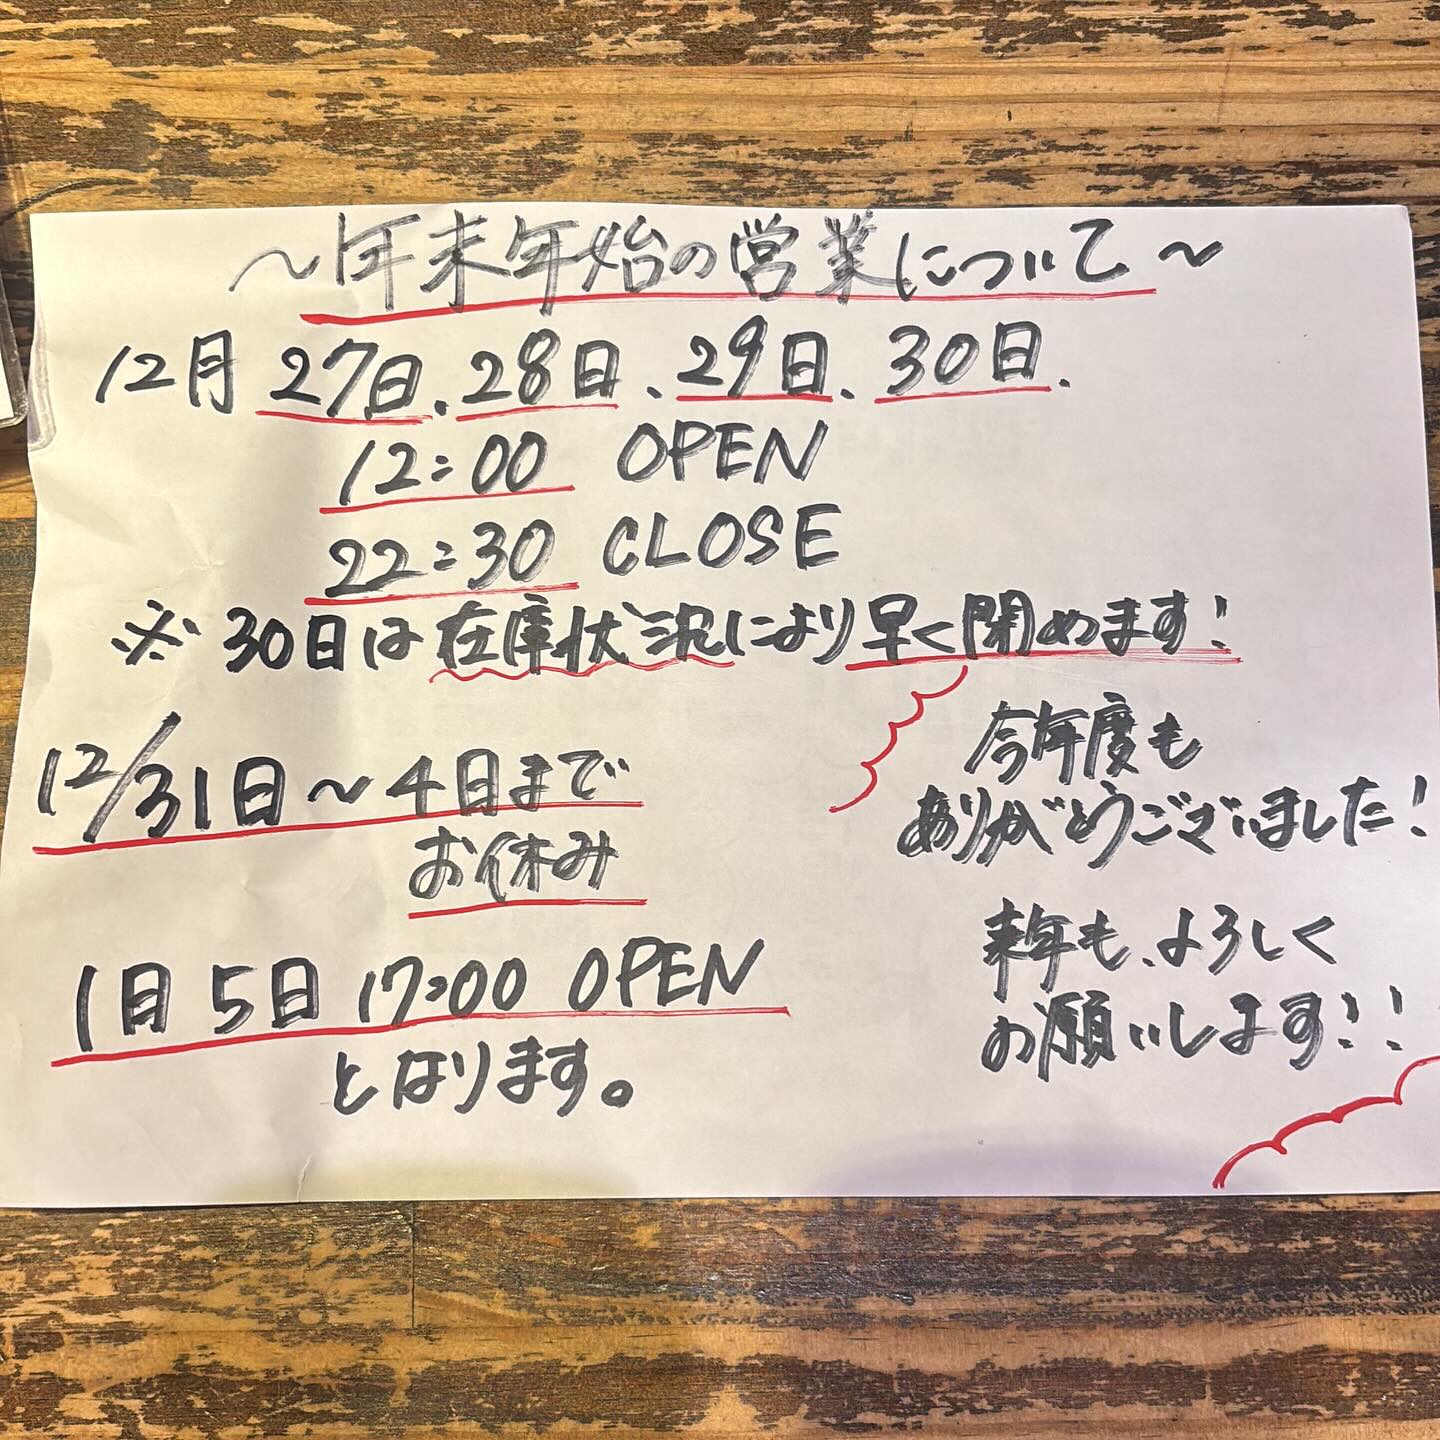 ～年末年始の営業について～
12月27日、28日、29日、30日、
12:00 OPEN
22:30 CLOSE
※30日は在庫状況により早く閉めます!
12/31日～4日まで
お休み
1日5日17:00 OPEN
となります。
今年度も
ありがとうございました!
来年も、よろしく
お願いします!!